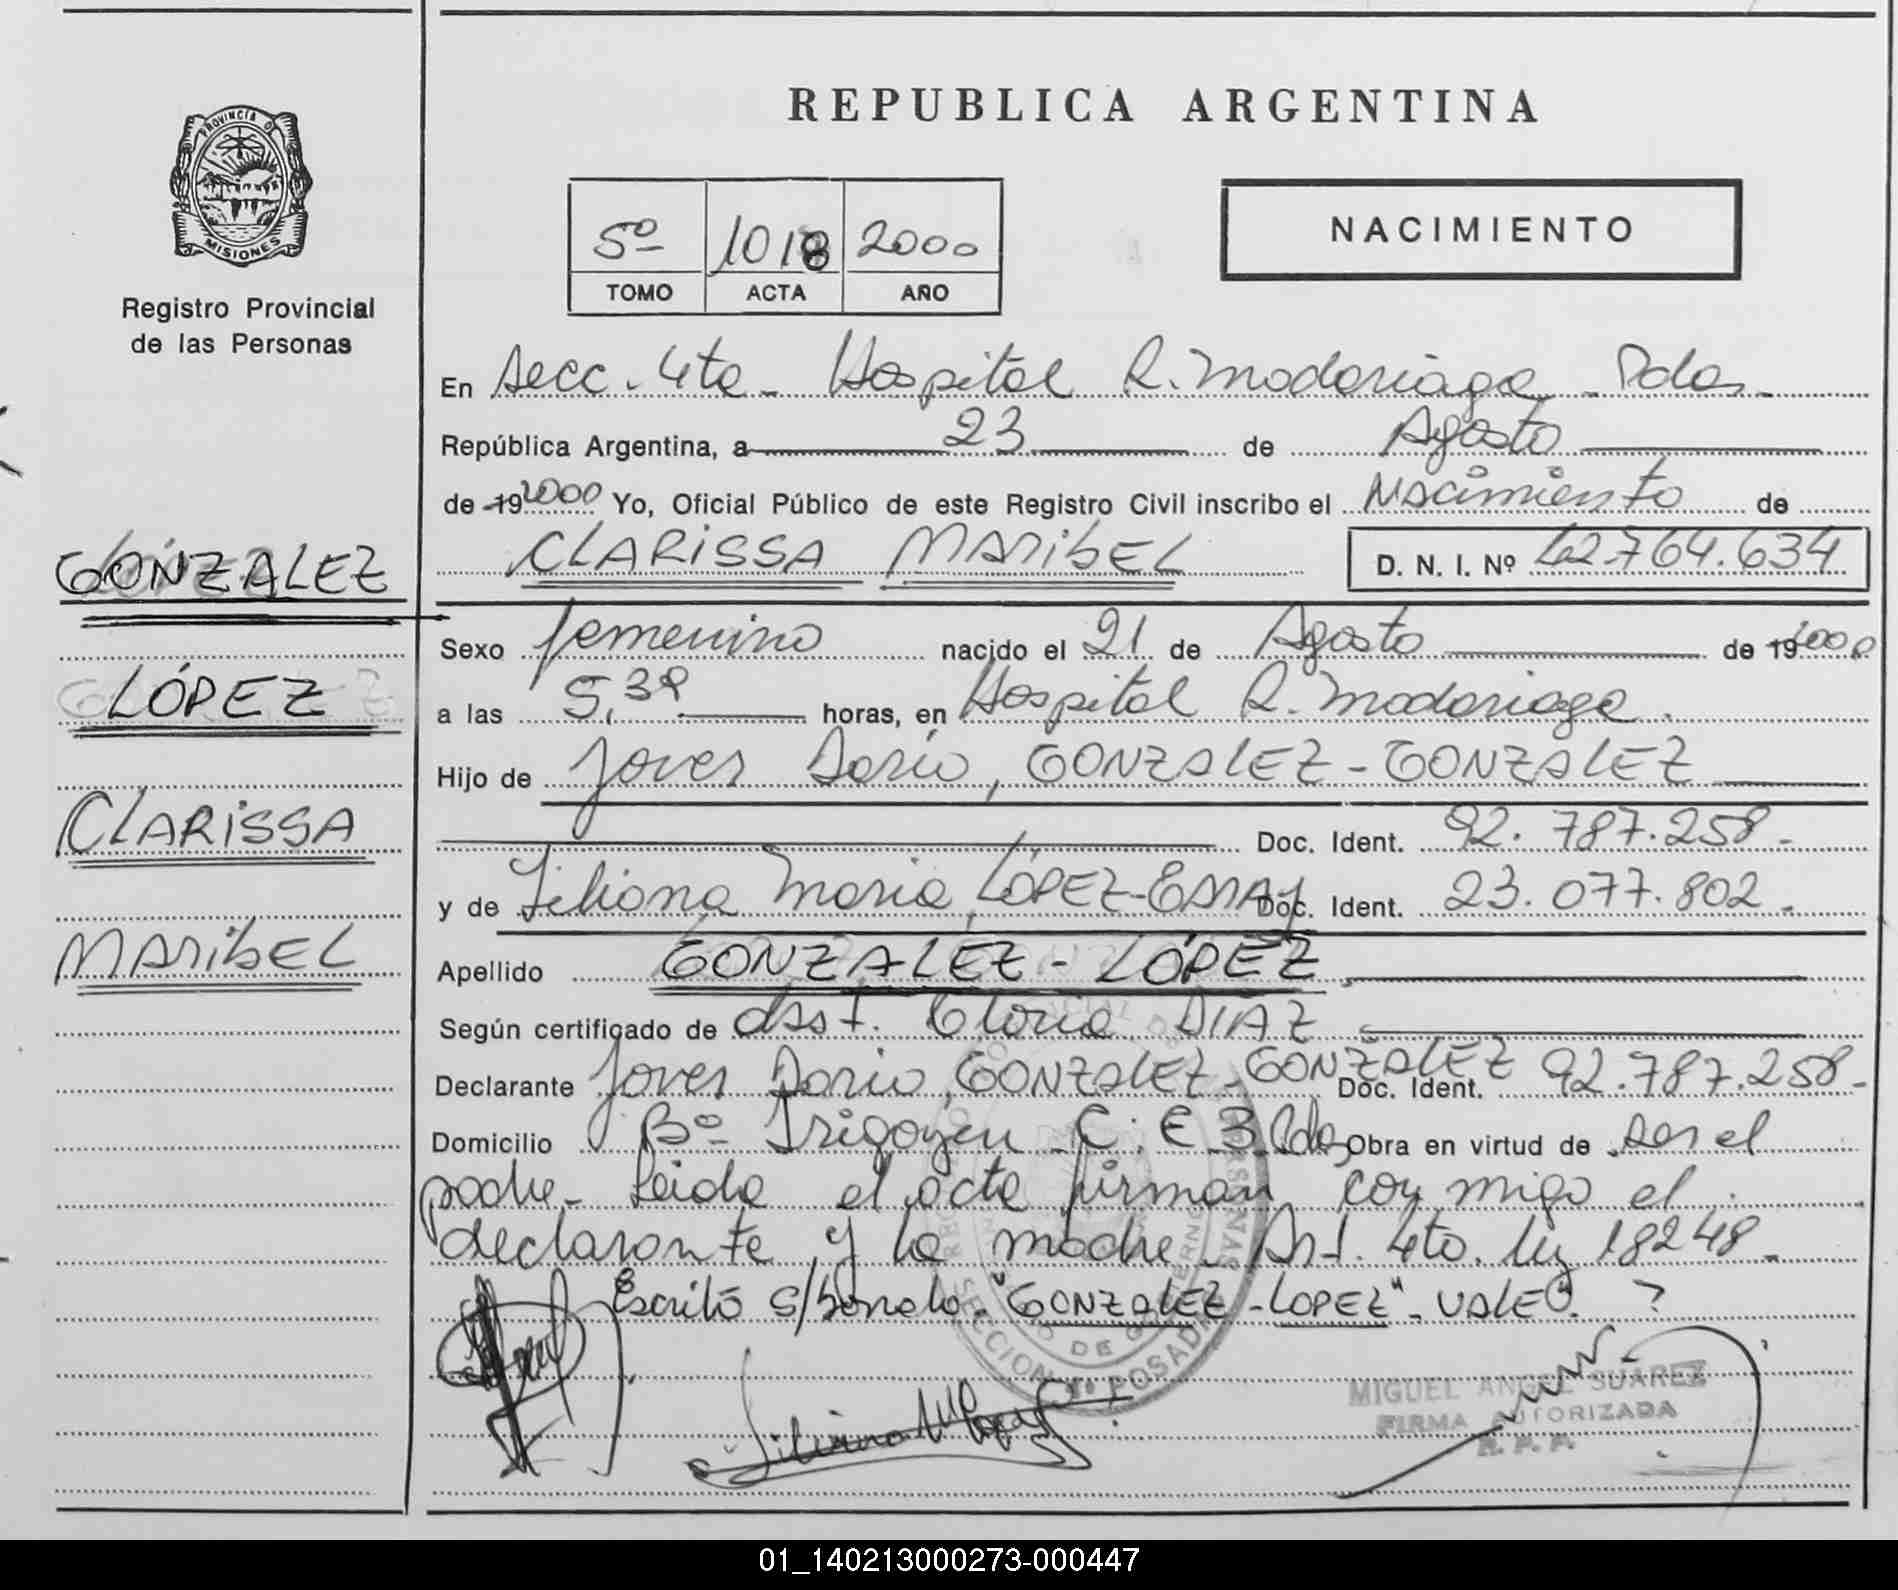 PROVINCIA DE
MISIONES
Registro Provincial
de las Personas
GONZALEZ
LÓPEZ
CLARISSA
MARIBEL
REPUBLICA ARGENTINA
5º 1018 2000
TOMO ACTA AÑO
NACIMIENTO
En Secc. 4ta - Hospital R. Madariaga - Pdas -
República Argentina, a 23 de Agosto
de 19 2000 Yo, Oficial Público de este Registro Civil inscribo el Nacimiento de
CLARISSA MARIBEL D. N. I. Nº 42.764.634
Sexo femenino nacido el 21 de Agosto de 19 2000
a las 5,38 horas, en Hospital R. Madariaga.
Hijo de Dario, GONZALEZ - GONZALEZ
Doc. Ident. 92. 787. 258 -
y de Liliana Maria LÓPEZ - Doc. Ident. 23. 077. 802 -
Apellido GONZALEZ - LÓPEZ
Según certificado de Gloria DIAZ
Declarante Dario, GONZALEZ - GONZALEZ Doc. Ident. 92. 787. 258 -
Domicilio Bº Irigoyen C. E 3 Pdas Obra en virtud de ser el
padre - Leida el acta firman con migo el
declarante y la madre - Art. 4to. ley 18248 -
Escritó s/borrado - "GONZALEZ - LOPEZ" - VALE
SECCION 4º POSADAS
MIGUEL ANGEL SUAREZ
FIRMA AUTORIZADA
R. P. P.
01_140213000273-000447